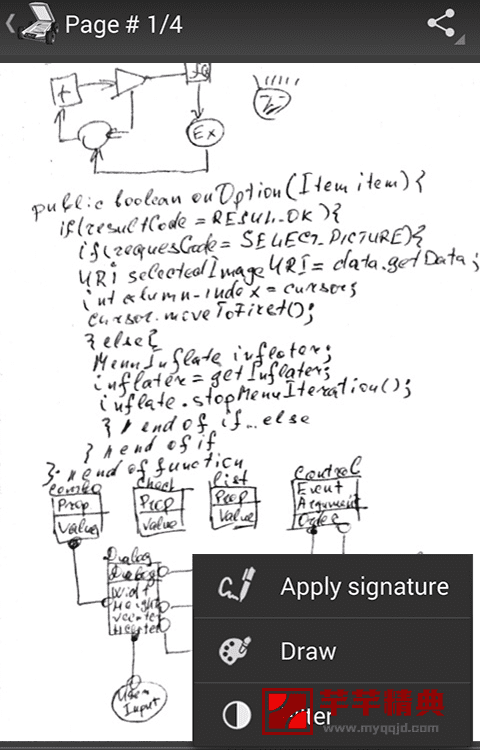 Page # 1/4
+
Ex
public boolean onOption(Item item){
if(resultCode = RESUL_OK){
if(requesCode = SELECT_PICTURE){
URi selectedImage URI = data.getData;
int column_index = cursor;
cursor.moveToFirst();
}else{
MenuInflate inflater;
inflater = getInflater;
inflate.stopMenuIteration();
} // end of if...else
} // end of if
}. // end of function
Combo Check List Control
Prop Prop Prop Event
Value Value Value Argument
Order
Dialog
Dialog
Widt
Height
Vcenter
Hcenter
User
Input
Apply signature
Draw
芊芊精典
www.myqqjd.com